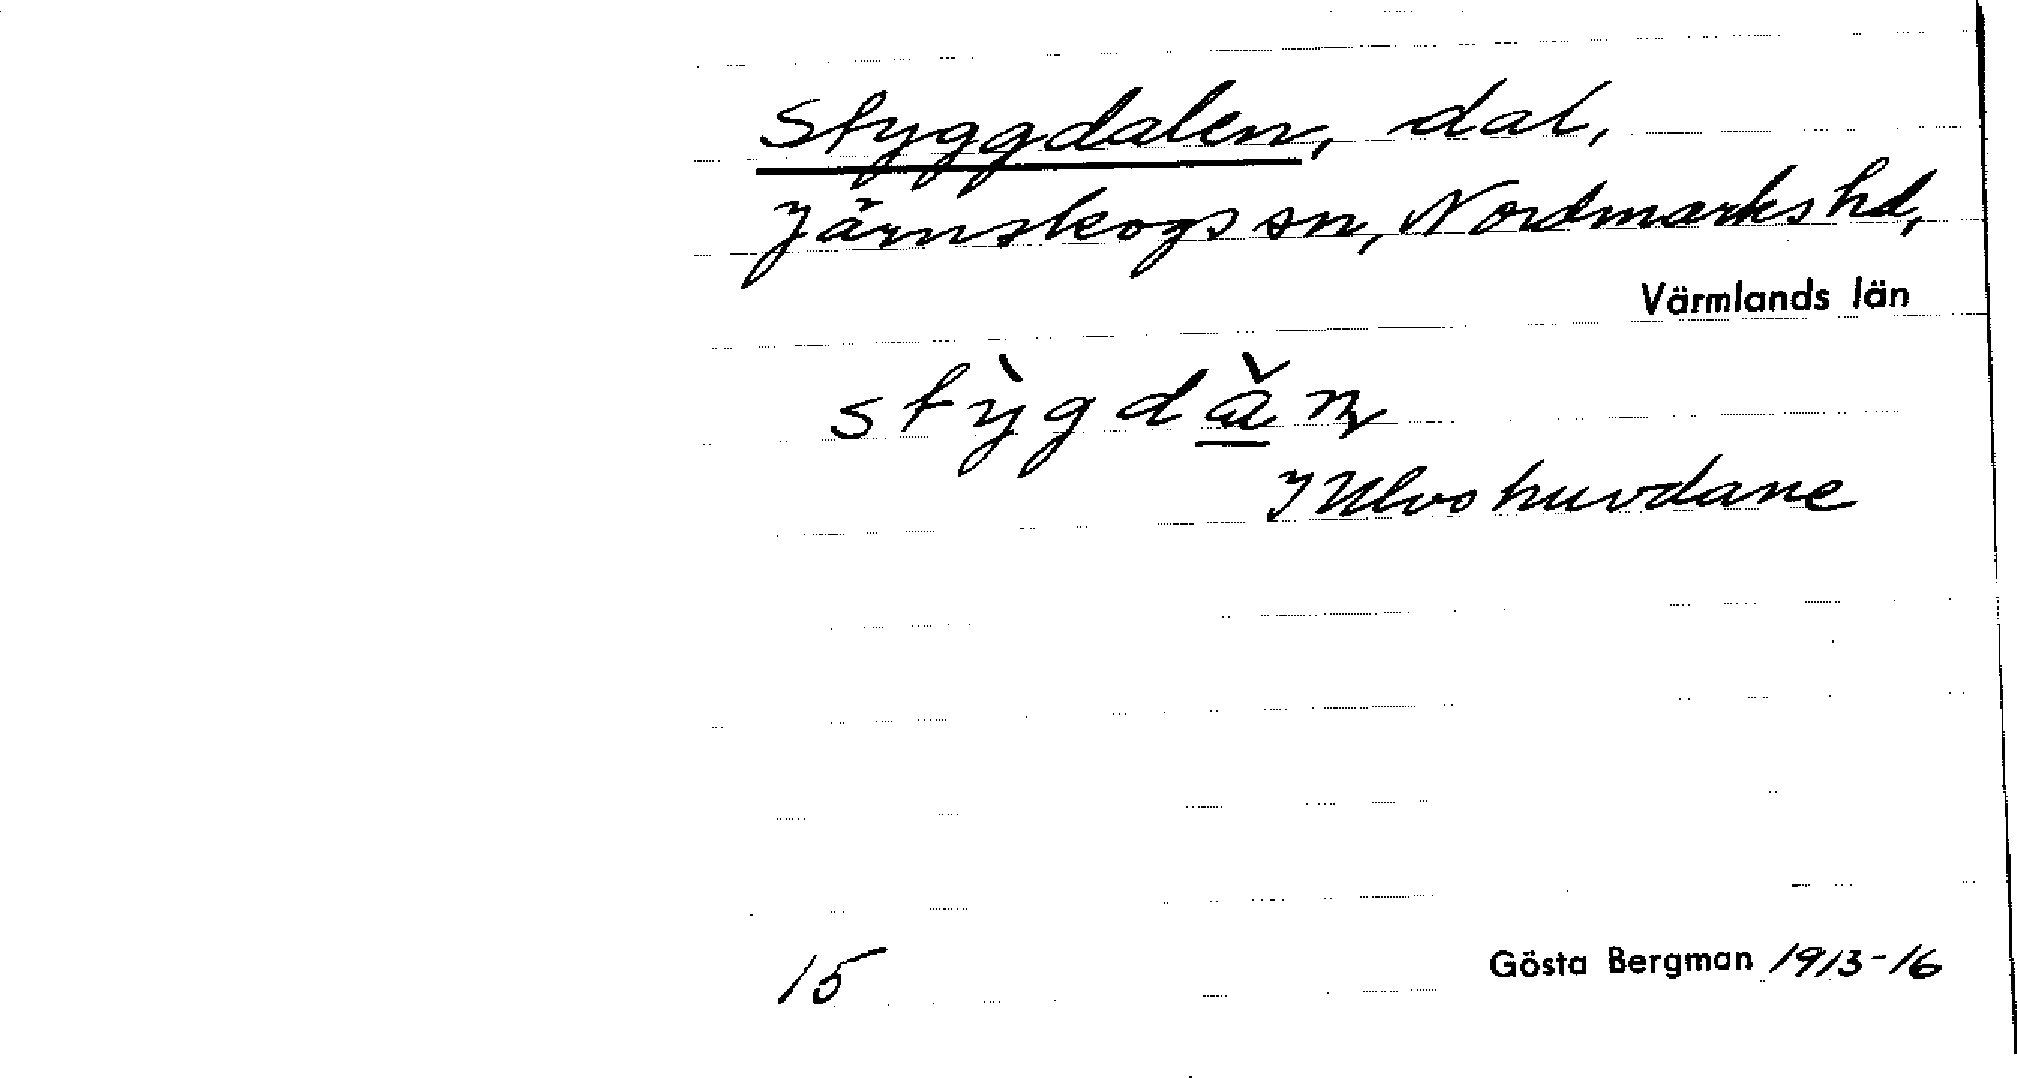 Styggdalen, dal,
Järnskogs sn, Nordmarks hd,
Värmlands län
stỳgdǎn̥
I Ulvshuvdane
15
Gösta Bergman 1913-16